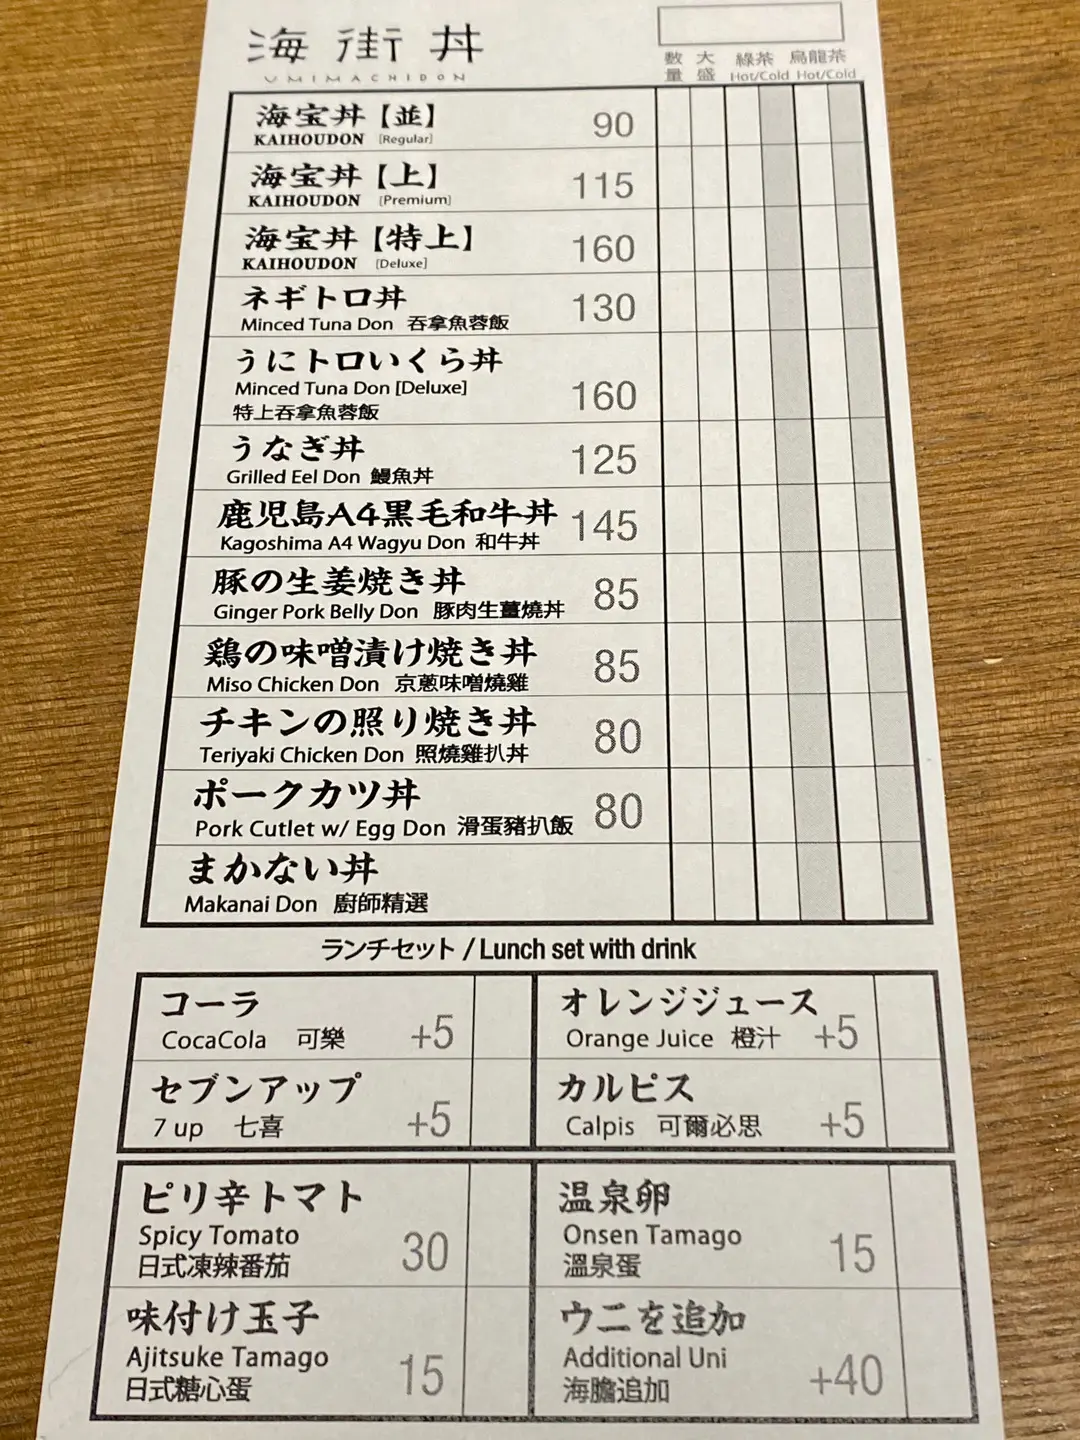 海街丼
UMIMACHIDON
数量 大盛 綠茶 烏龍茶
Hot/Cold Hot/Cold
海宝丼【並】 90
KAIHOUDON [Regular]
海宝丼【上】 115
KAIHOUDON [Premium]
海宝丼【特上】 160
KAIHOUDON [Deluxe]
ネギトロ丼 130
Minced Tuna Don 吞拿魚蓉飯
うにトロいくら丼
Minced Tuna Don [Deluxe] 160
特上吞拿魚蓉飯
うなぎ丼 125
Grilled Eel Don 鰻魚丼
鹿児島A4黒毛和牛丼 145
Kagoshima A4 Wagyu Don 和牛丼
豚の生姜焼き丼 85
Ginger Pork Belly Don 豚肉生薑燒丼
鶏の味噌漬け焼き丼 85
Miso Chicken Don 京蔥味噌燒雞
チキンの照り焼き丼 80
Teriyaki Chicken Don 照燒雞扒丼
ポークカツ丼 80
Pork Cutlet w/ Egg Don 滑蛋豬扒飯
まかない丼
Makanai Don 廚師精選
ランチセット / Lunch set with drink
コーラ
CocaCola 可樂 +5
オレンジジュース
Orange Juice 橙汁 +5
セブンアップ
7 up 七喜 +5
カルピス
Calpis 可爾必思 +5
ピリ辛トマト
Spicy Tomato 30
日式凍辣番茄
温泉卵
Onsen Tamago 15
溫泉蛋
味付け玉子
Ajitsuke Tamago 15
日式糖心蛋
ウニを追加
Additional Uni +40
海膽追加